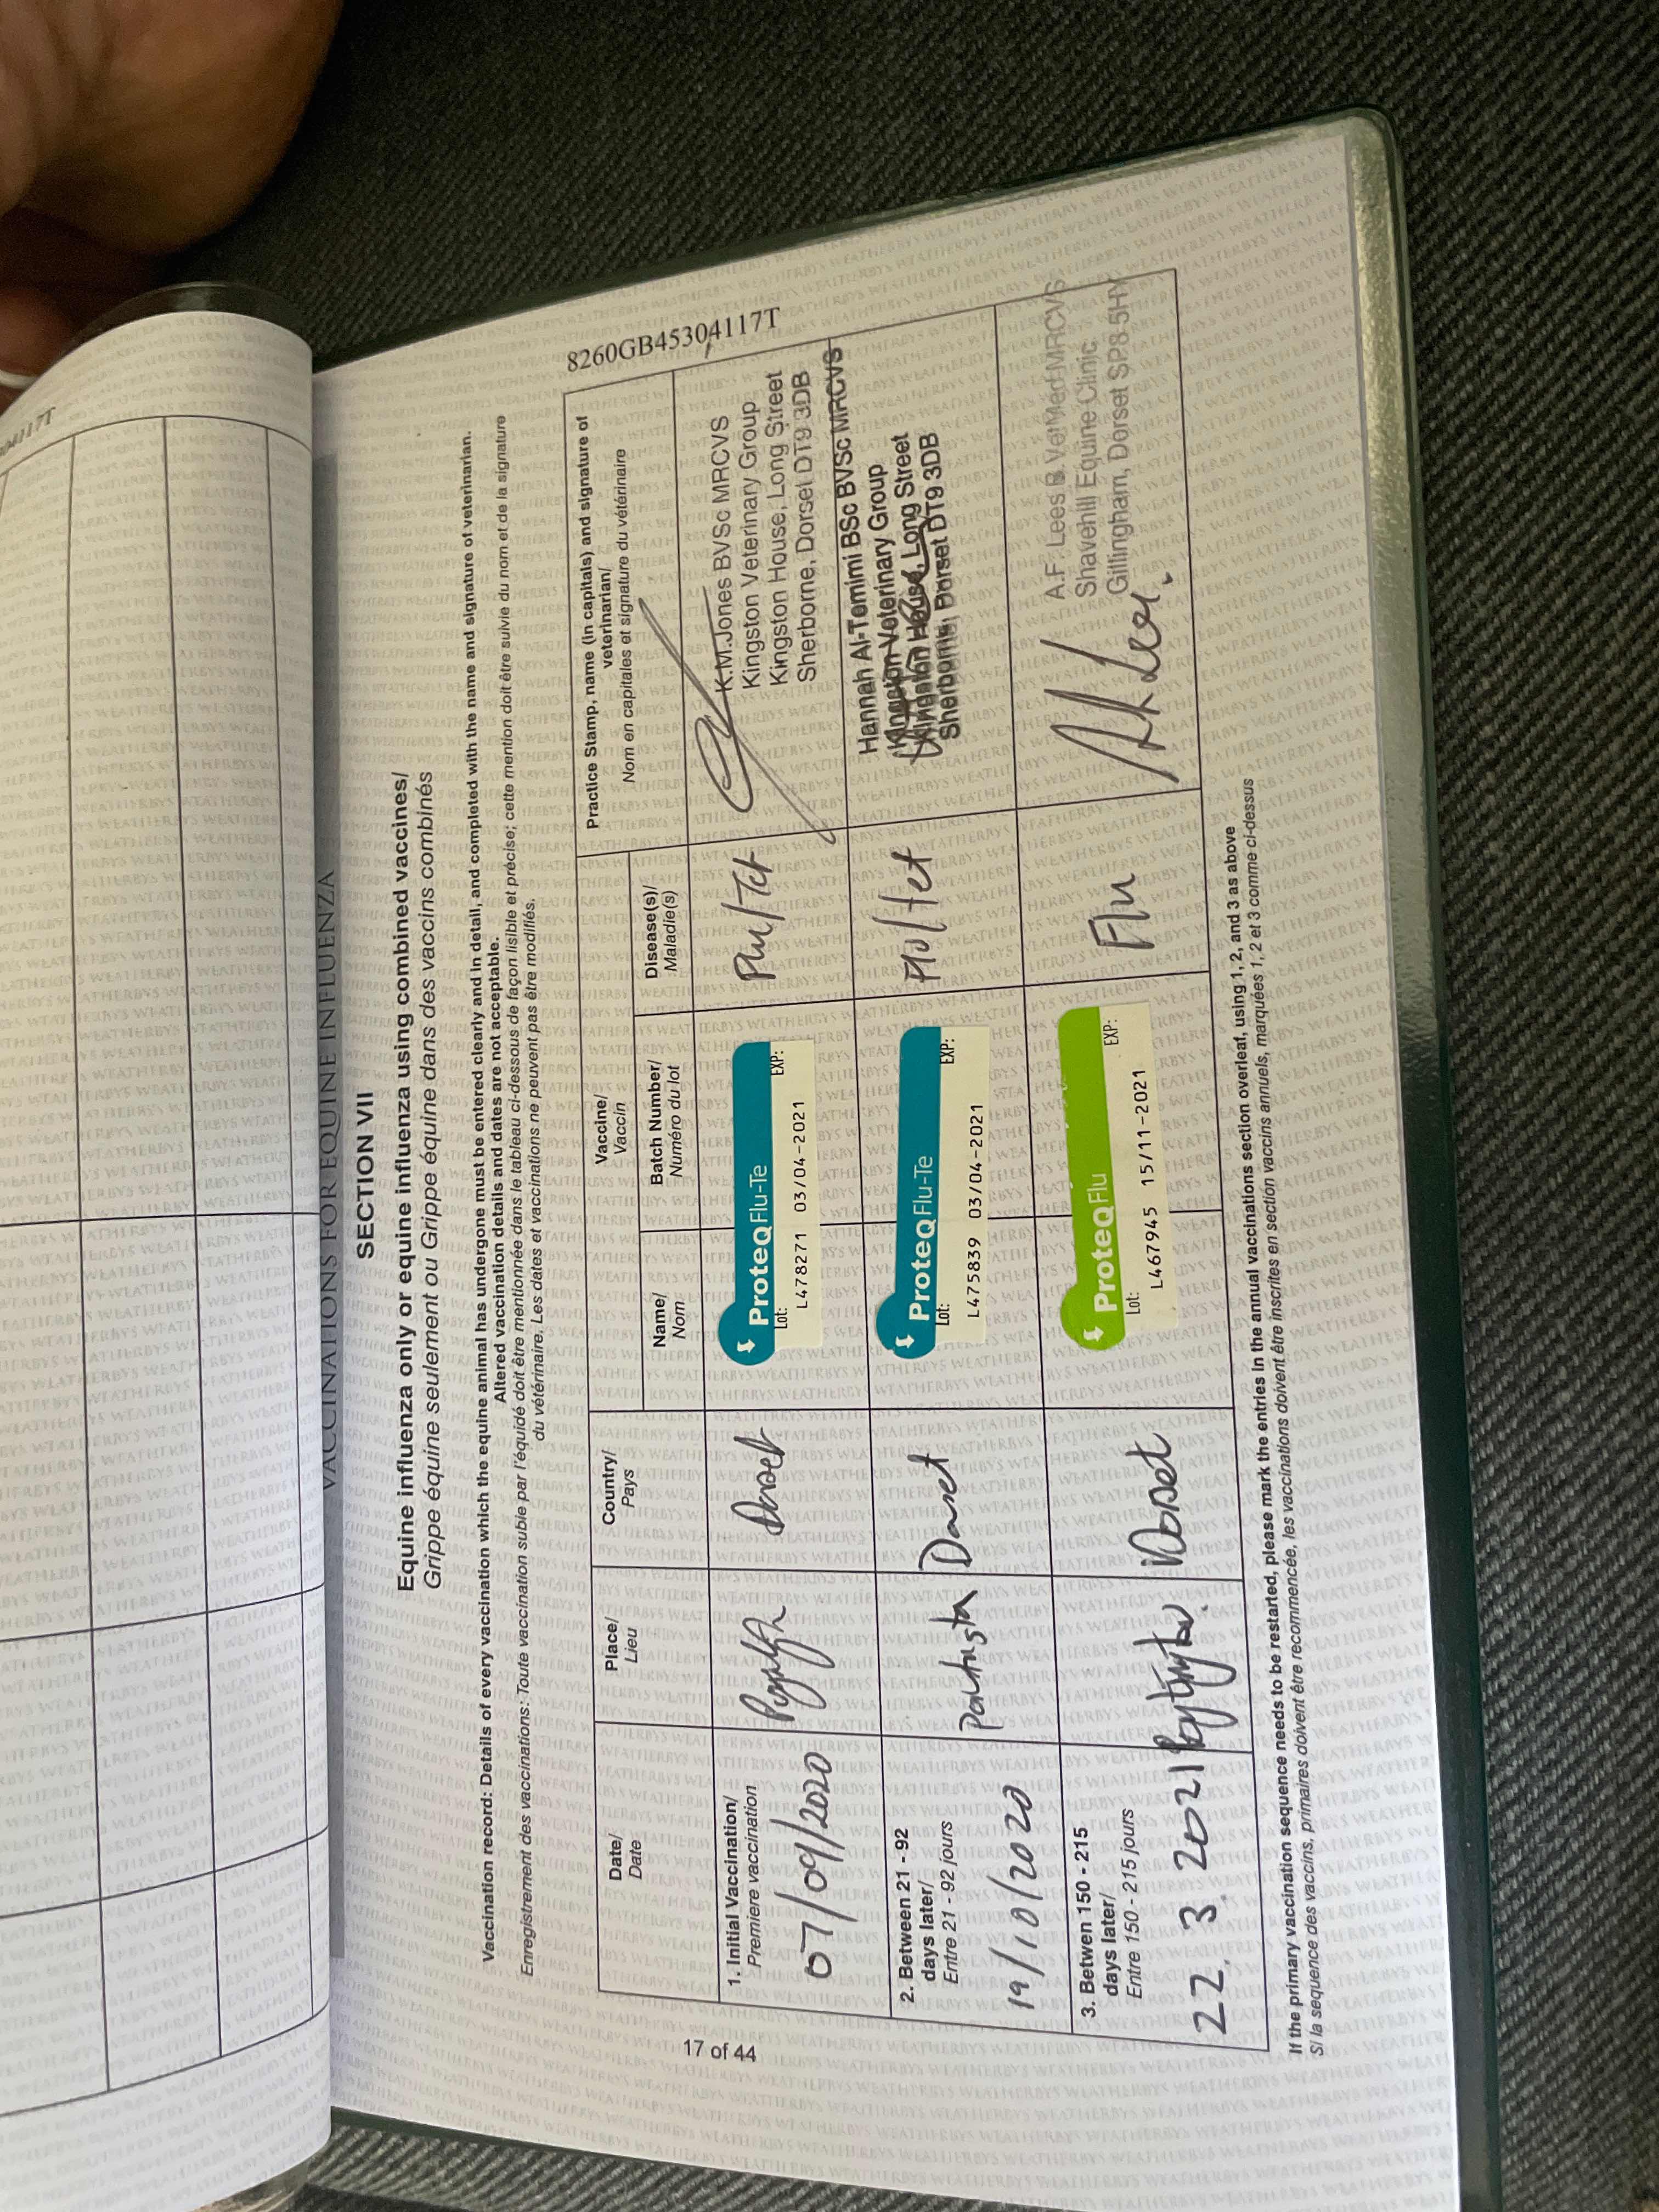 04117T
VACCINATIONS FOR EQUINE INFLUENZA
8260GB45304117T
SECTION VII
Equine influenza only or equine influenza using combined vaccines/
Grippe équine seulement ou Grippe équine dans des vaccins combinés
Vaccination record: Details of every vaccination which the equine animal has undergone must be entered clearly and in detail, and completed with the name and signature of veterinarian.
Altered vaccination details and dates are not acceptable.
Enregistrement des vaccinations: Toute vaccination subie par l'équidé doit être mentionnée dans le tableau ci-dessous de façon lisible et précise; cette mention doit être suivie du nom et de la signature
du vétérinaire. Les dates et vaccinations ne peuvent pas être modifiés.
Date/
Date
Place/
Lieu
Country/
Pays
Vaccine/
Vaccin
Name/
Nom
Batch Number/
Numéro du lot
Disease(s)/
Maladie(s)
Practice Stamp, name (in capitals) and signature of
veterinarian/
Nom en capitales et signature du vétérinaire
1. Initial Vaccination/
Premiere vaccination
07/09/2020
Dorset
ProteqFlu-Te
Lot: EXP:
L478271 03/04-2021
Flu/Tet
K.M.Jones BVSc MRCVS
Kingston Veterinary Group
Kingston House, Long Street
Sherborne, Dorset DT9 3DB
2. Between 21 - 92
days later/
Entre 21 - 92 jours
19/10/2020
Dorset
ProteqFlu-Te
Lot: EXP:
L475839 03/04-2021
Flu/tet
Hannah Al-Temimi BSc BVSc MRCVS
Kingston Veterinary Group
Kingston House, Long Street
Sherborne, Dorset DT9 3DB
3. Between 150 - 215
days later/
Entre 150 - 215 jours
22. 3. 2021
Dorset
ProteqFlu
Lot: EXP:
L467945 15/11-2021
Flu
A.F. Lees B.VetMed MRCVS
Shavehill Equine Clinic
Gillingham, Dorset SP8 5HY
If the primary vaccination sequence needs to be restarted, please mark the entries in the annual vaccinations section overleaf, using 1, 2, and 3 as above
Si la sequence des vaccins, primaires doivent être recommencée, les vaccinations doivent être inscrites en section vaccins annuels, marquées 1, 2 et 3 comme ci-dessus
17 of 44